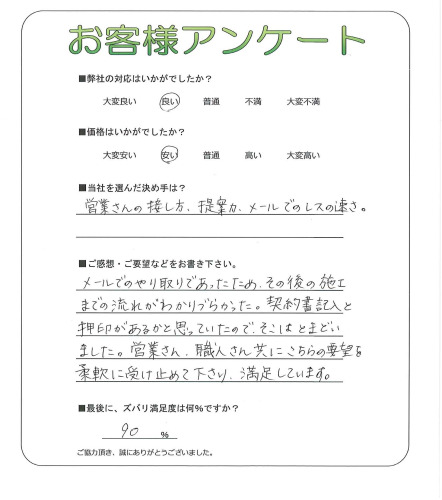 お客様アンケート
■弊社の対応はいかがでしたか？
大変良い 良い 普通 不満 大変不満
■価格はいかがでしたか？
大変安い 安い 普通 高い 大変高い
■当社を選んだ決め手は？
営業さんの接し方、提案力、メールでのレスの速さ。
■ご感想・ご要望などをお書き下さい。
メールでのやり取りであったため、その後の施工
までの流れがわかりづらかった。契約書記入と
押印があるかと思っていたので、そこはとまどい
ました。営業さん、職人さん共にこちらの要望を
柔軟に受け止めて下さり、満足しています。
■最後に、ズバリ満足度は何%ですか？
90 %
ご協力頂き、誠にありがとうございました。